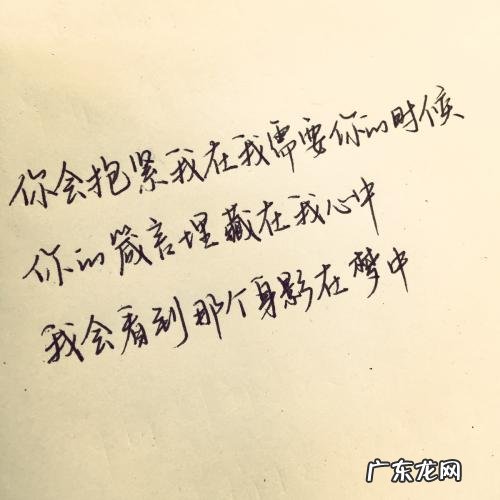 你会抱紧我在我需要你的时候
你的箴言埋藏在我心中
我会看到那个身影在梦中
广东龙网